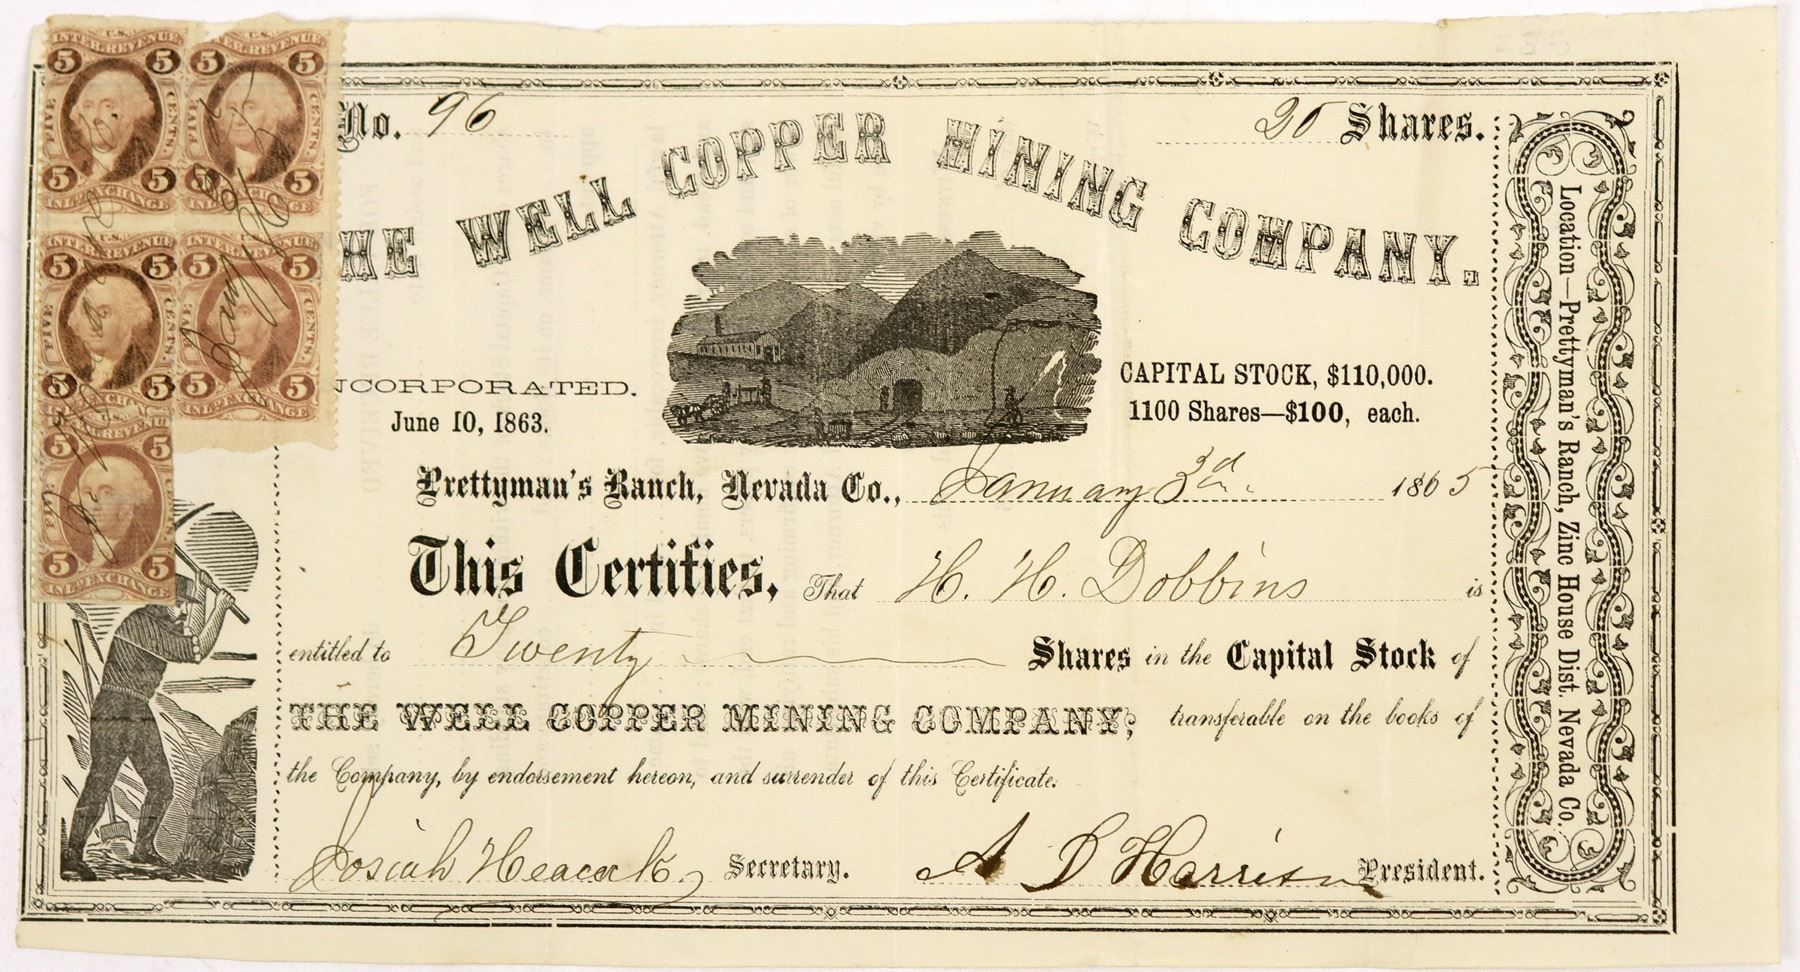 No. 96
20 Shares.
HE WELL COPPER MINING COMPANY.
NCORPORATED.
June 10, 1863.
CAPITAL STOCK, $110,000.
1100 Shares—$100, each.
Prettyman's Ranch, Nevada Co., January 3d 1865
This Certifies, That H. H. Dobbins is
entitled to Twenty Shares in the Capital Stock of
THE WELL COPPER MINING COMPANY; transferable on the books of
the Company, by endorsement hereon, and surrender of this Certificate.
Josiah Heacock, Secretary. A D Harrison President.
Location—Prettyman's Ranch, Zinc House Dist. Nevada Co.
U.S.
INTER. REVENUE
5 5
FIVE CENTS.
5 5
INL. EXCHANGE
U.S.
INTER. REVENUE
5 5
FIVE CENTS.
5 5
INL. EXCHANGE
U.S.
INTER. REVENUE
5 5
FIVE CENTS.
5 5
INL. EXCHANGE
INTER. REVENUE
5 5
FIVE CENTS.
5 5
INL. EXCHANGE
U.S.
INTER. REVENUE
5 5
FIVE CENTS.
5 5
INL. EXCHANGE